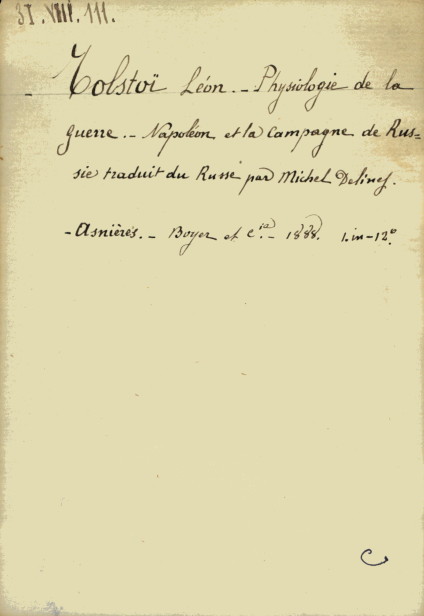 37.VIII.111.
- Tolstoï Léon. - Physiologie de la
guerre. - Napoléon et la Campagne de Rus=
sie traduit du Russe par Michel Delines.
- Asnières. - Boyer et Cie. - 1888. 1.in-12°.
C